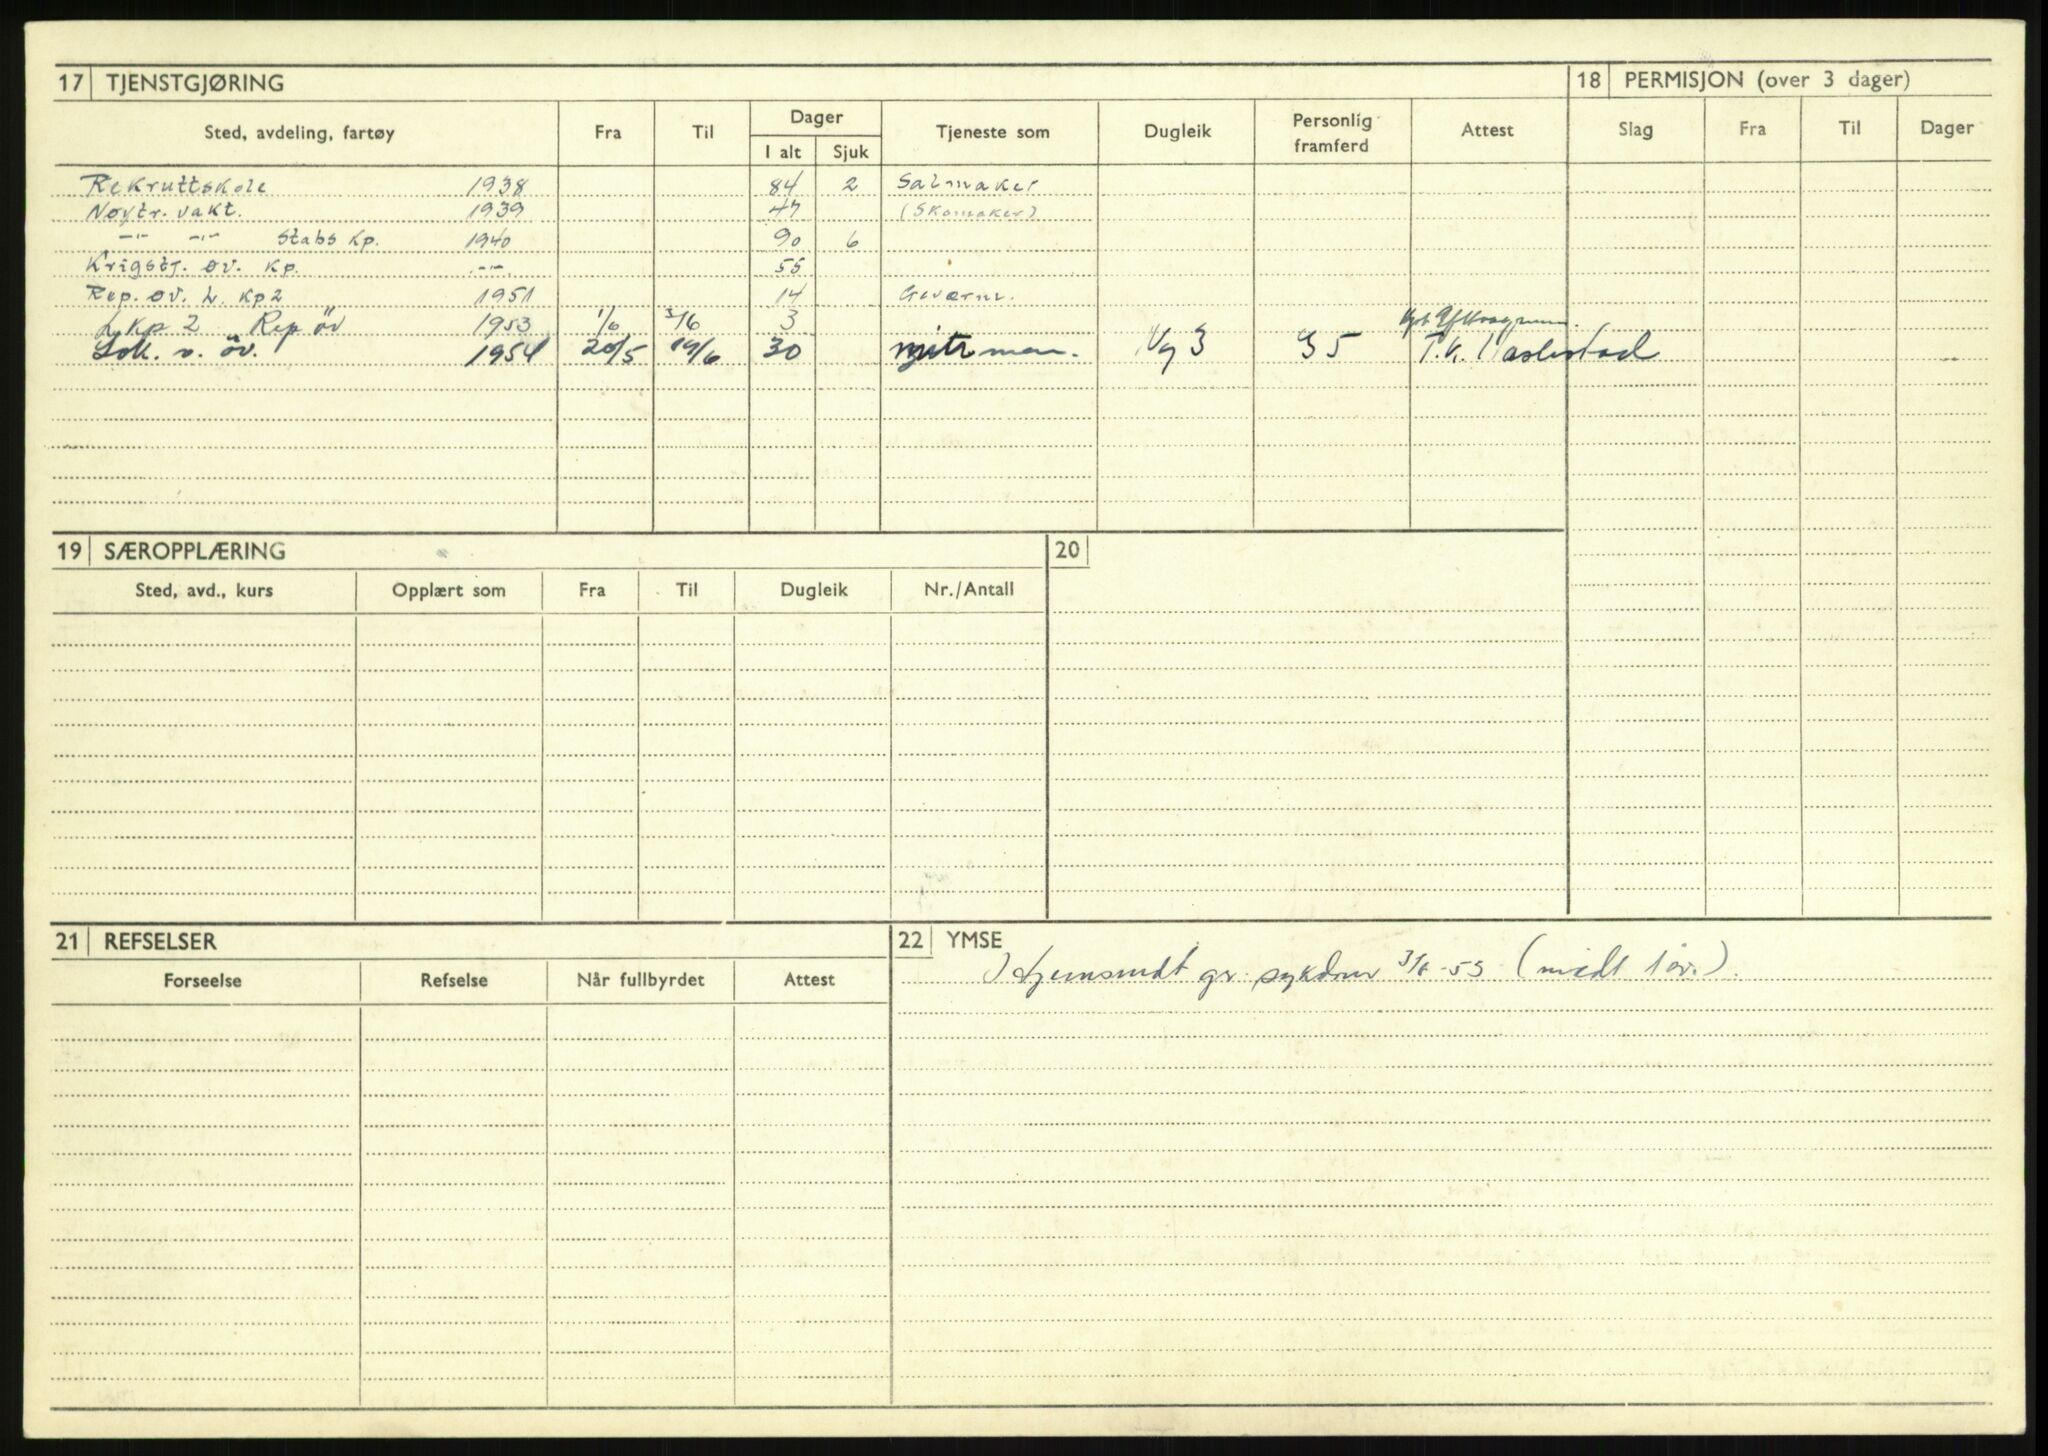 17 TJENSTGJØRING 18 PERMISJON (over 3 dager)
Sted, avdeling, fartøy Fra Til Dager Tjeneste som Dugleik Personlig framferd Attest Slag Fra Til Dager
I alt Sjuk
Rekruttskole 1938 84 2 Salmaker
Nøytr. vakt. 1939 47 (Skomaker)
—"— —"— Stabs kp. 1940 90 6
Krigstj. øv. kp. —"— 55
Rep. øv. L. kp 2 1951 14 Geværm.
L kp 2 Rep öv 1953 1/6 3/6 3
Lok. v. öv. 1954 20/5 19/6 30 mitr man. Vg 3 S 5 T. K.
19 SÆROPPLÆRING 20
Sted, avd., kurs Opplært som Fra Til Dugleik Nr./Antall
21 REFSELSER 22 YMSE
Forseelse Refselse Når fullbyrdet Attest
Hjemsendt gr. sykdom 3/6-53 (mødt 1 öv.).